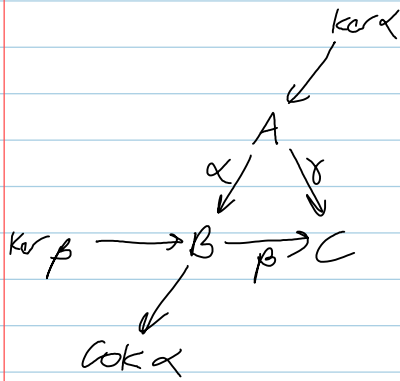 ker α
A
α γ
ker β B β C
Cok α